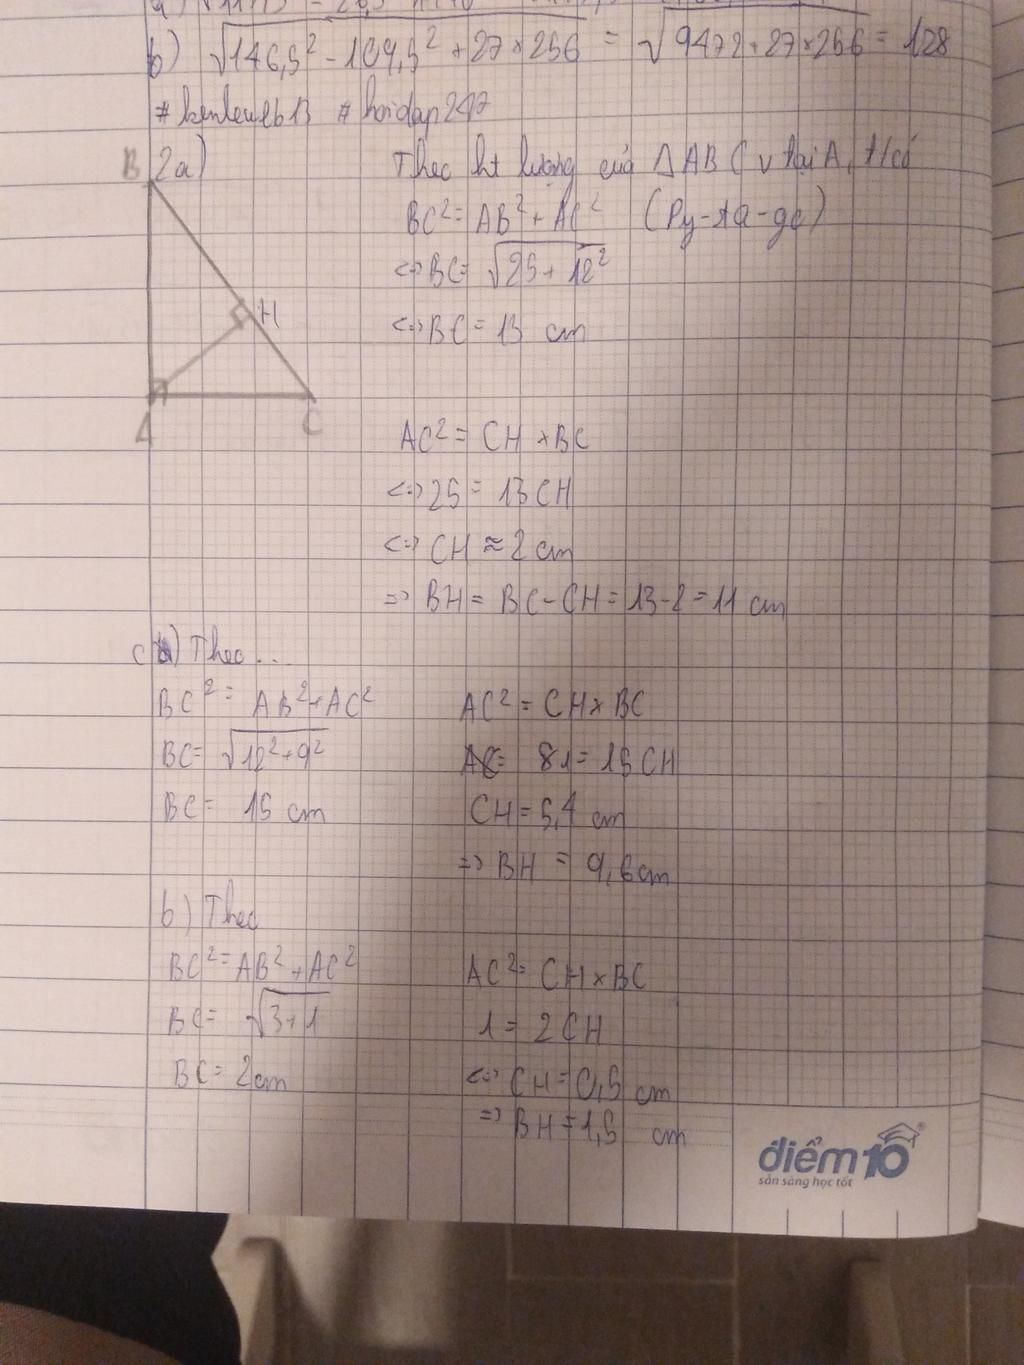 b) √146,5² - 109,5² + 27 × 256 = √9472 + 27 × 256 = 128
#kenleweb13 #hoidap247
B 2a) Theo ht lượng của △ABC v tại A, t/có
BC² = AB² + AC² (Py-ta-go)
<=> BC = √25 + 12²
H <=> BC = 13 cm
A C
AC² = CH × BC
<=> 25 = 13CH
<=> CH ≈ 2 cm
=> BH = BC - CH = 13 - 2 = 11 cm
c) Theo ...
BC² = AB² + AC² AC² = CH × BC
BC = √12² + 9² 81 = 15CH
BC = 15 cm CH = 5,4 cm
=> BH = 9,6 cm
b) Theo
BC² = AB² + AC² AC² = CH × BC
BC = √3 + 1 1 = 2CH
BC = 2cm <=> CH = 0,5 cm
=> BH = 1,5 cm
điểm10
sẵn sàng học tốt